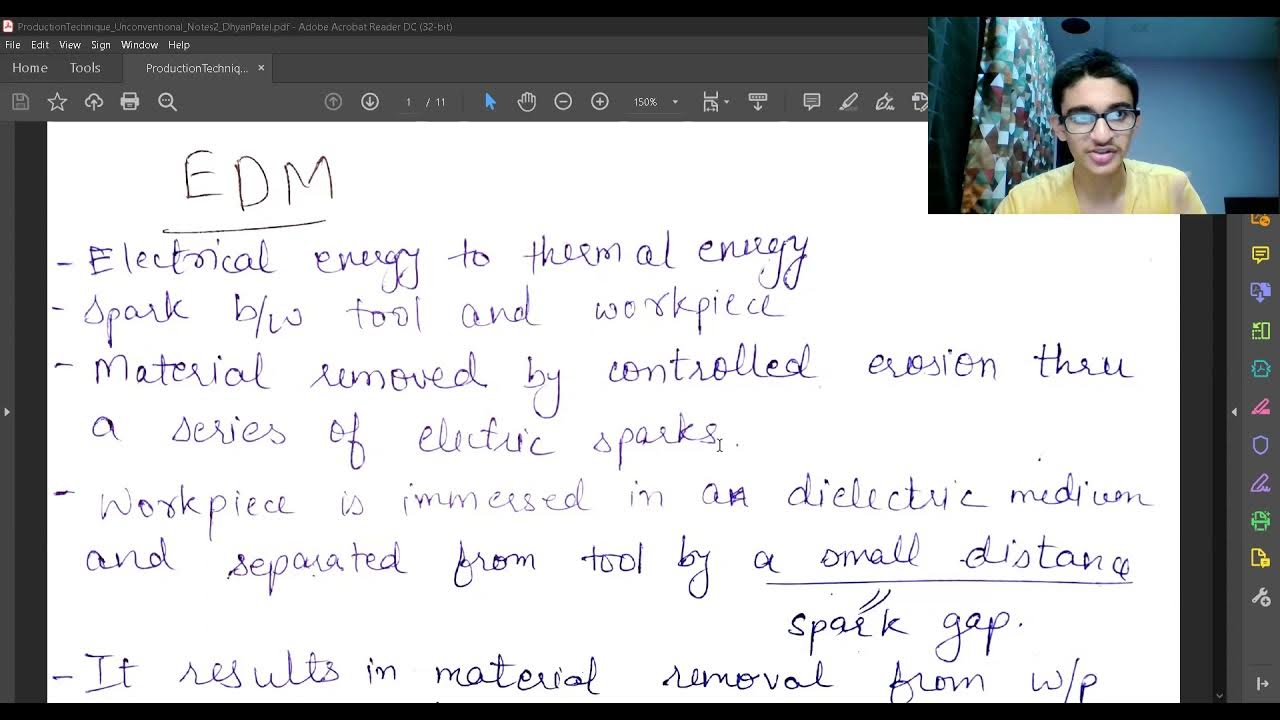 ProductionTechnique_Unconventional_Notes2_DhyanPatel.pdf - Adobe Acrobat Reader DC (32-bit)
File Edit View Sign Window Help
Home Tools ProductionTechniq... ×
1 / 11 150%
EDM
- Electrical energy to thermal energy
- Spark b/w tool and workpiece
- Material removed by controlled erosion thru
a series of electric sparks.
- Workpiece is immersed in a dielectric medium
and separated from tool by a small distance
spark gap.
- It results in material removal from w/p